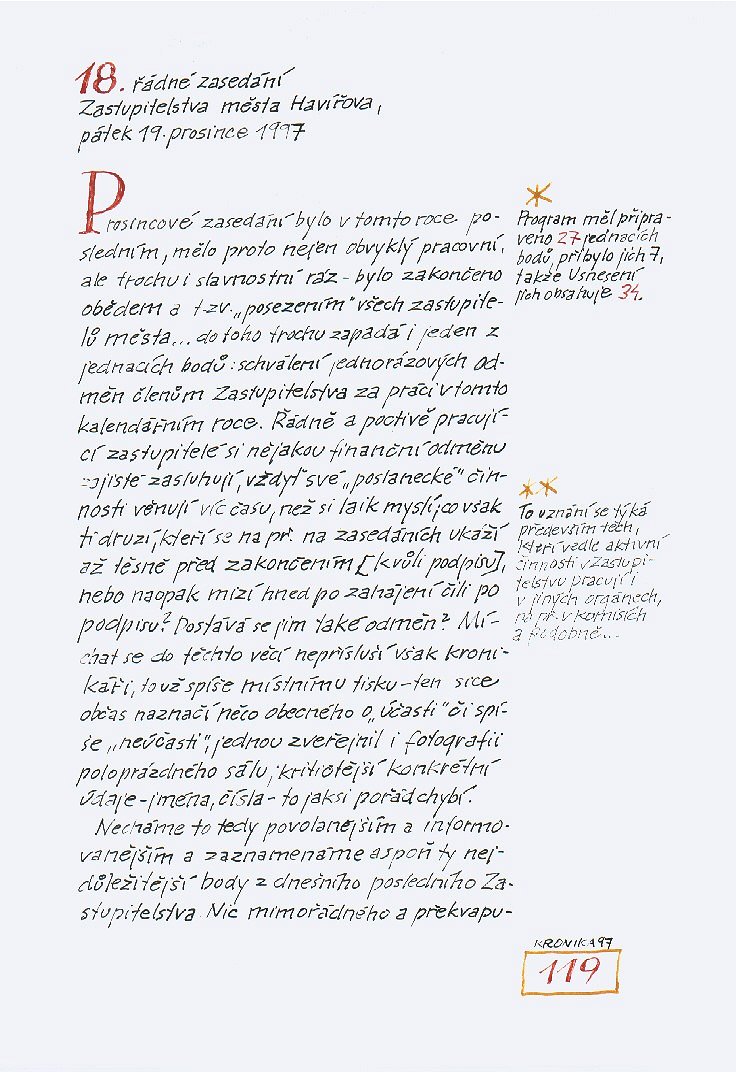 18. řádné zasedání
Zastupitelstva města Havířova,
pátek 19. prosince 1997
Prosincové zasedání bylo v tomto roce po-
sledním, mělo proto nejen obvyklý pracovní,
ale trochu i slavnostní ráz - bylo zakončeno
obědem a t.zv. „posezením" všech zastupite-
lů města... do toho trochu zapadá i jeden z
jednacích bodů: schválení jednorázových od-
měn členům Zastupitelstva za práci v tomto
kalendářním roce. Řádně a poctivě pracují-
cí zastupitelé si nějakou finanční odměnu
zajisté zasluhují, vždyť své „poslanecké" čin-
nosti věnují víc času, než si laik myslí, co však
ti druzí, kteří se na př. na zasedáních ukáží
až těsně před zakončením [kvůli podpisu],
nebo naopak mizí hned po zahájení čili po
podpisu? Dostává se jim také odměn? Mí-
chat se do těchto věcí nepřísluší však kroni-
káři, to už spíše místnímu tisku - ten sice
občas naznačí něco obecného o „účasti" či spí-
še „neúčasti", jednou zveřejnil i fotografii
poloprázdného sálu, kritičtější konkrétní
údaje - jména, čísla - to jaksi pořád chybí.
Necháme to tedy povolanějším a informo-
vanějším a zaznamenáme aspoň ty nej-
důležitější body z dnešního posledního Za-
stupitelstva. Nic mimořádného a překvapu-
*
Program měl připra-
veno 27 jednacích
bodů, přibylo jich 7,
takže Usnesení
jich obsahuje 34.
**
To uznání se týká
především těch,
kteří vedle aktivní
činnosti v Zastupi-
telstvu pracují i
v jiných orgánech,
na př. v komisích
a podobně...
KRONIKA 97
119